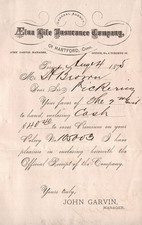 Ætna Life Insurance Company,
OF HARTFORD, Conn.
JOHN GARVIN, MANAGER,
Aug 4 1875
Mr. Brown
Pickering
Dear Sir
Your favor of the 2nd inst
to hand, enclosing Cash
to cover Premium on your
Policy No. 105003 I have
pleasure in enclosing herewith the
Official Receipt of the Company.
Yours truly,
JOHN GARVIN,
MANAGER.